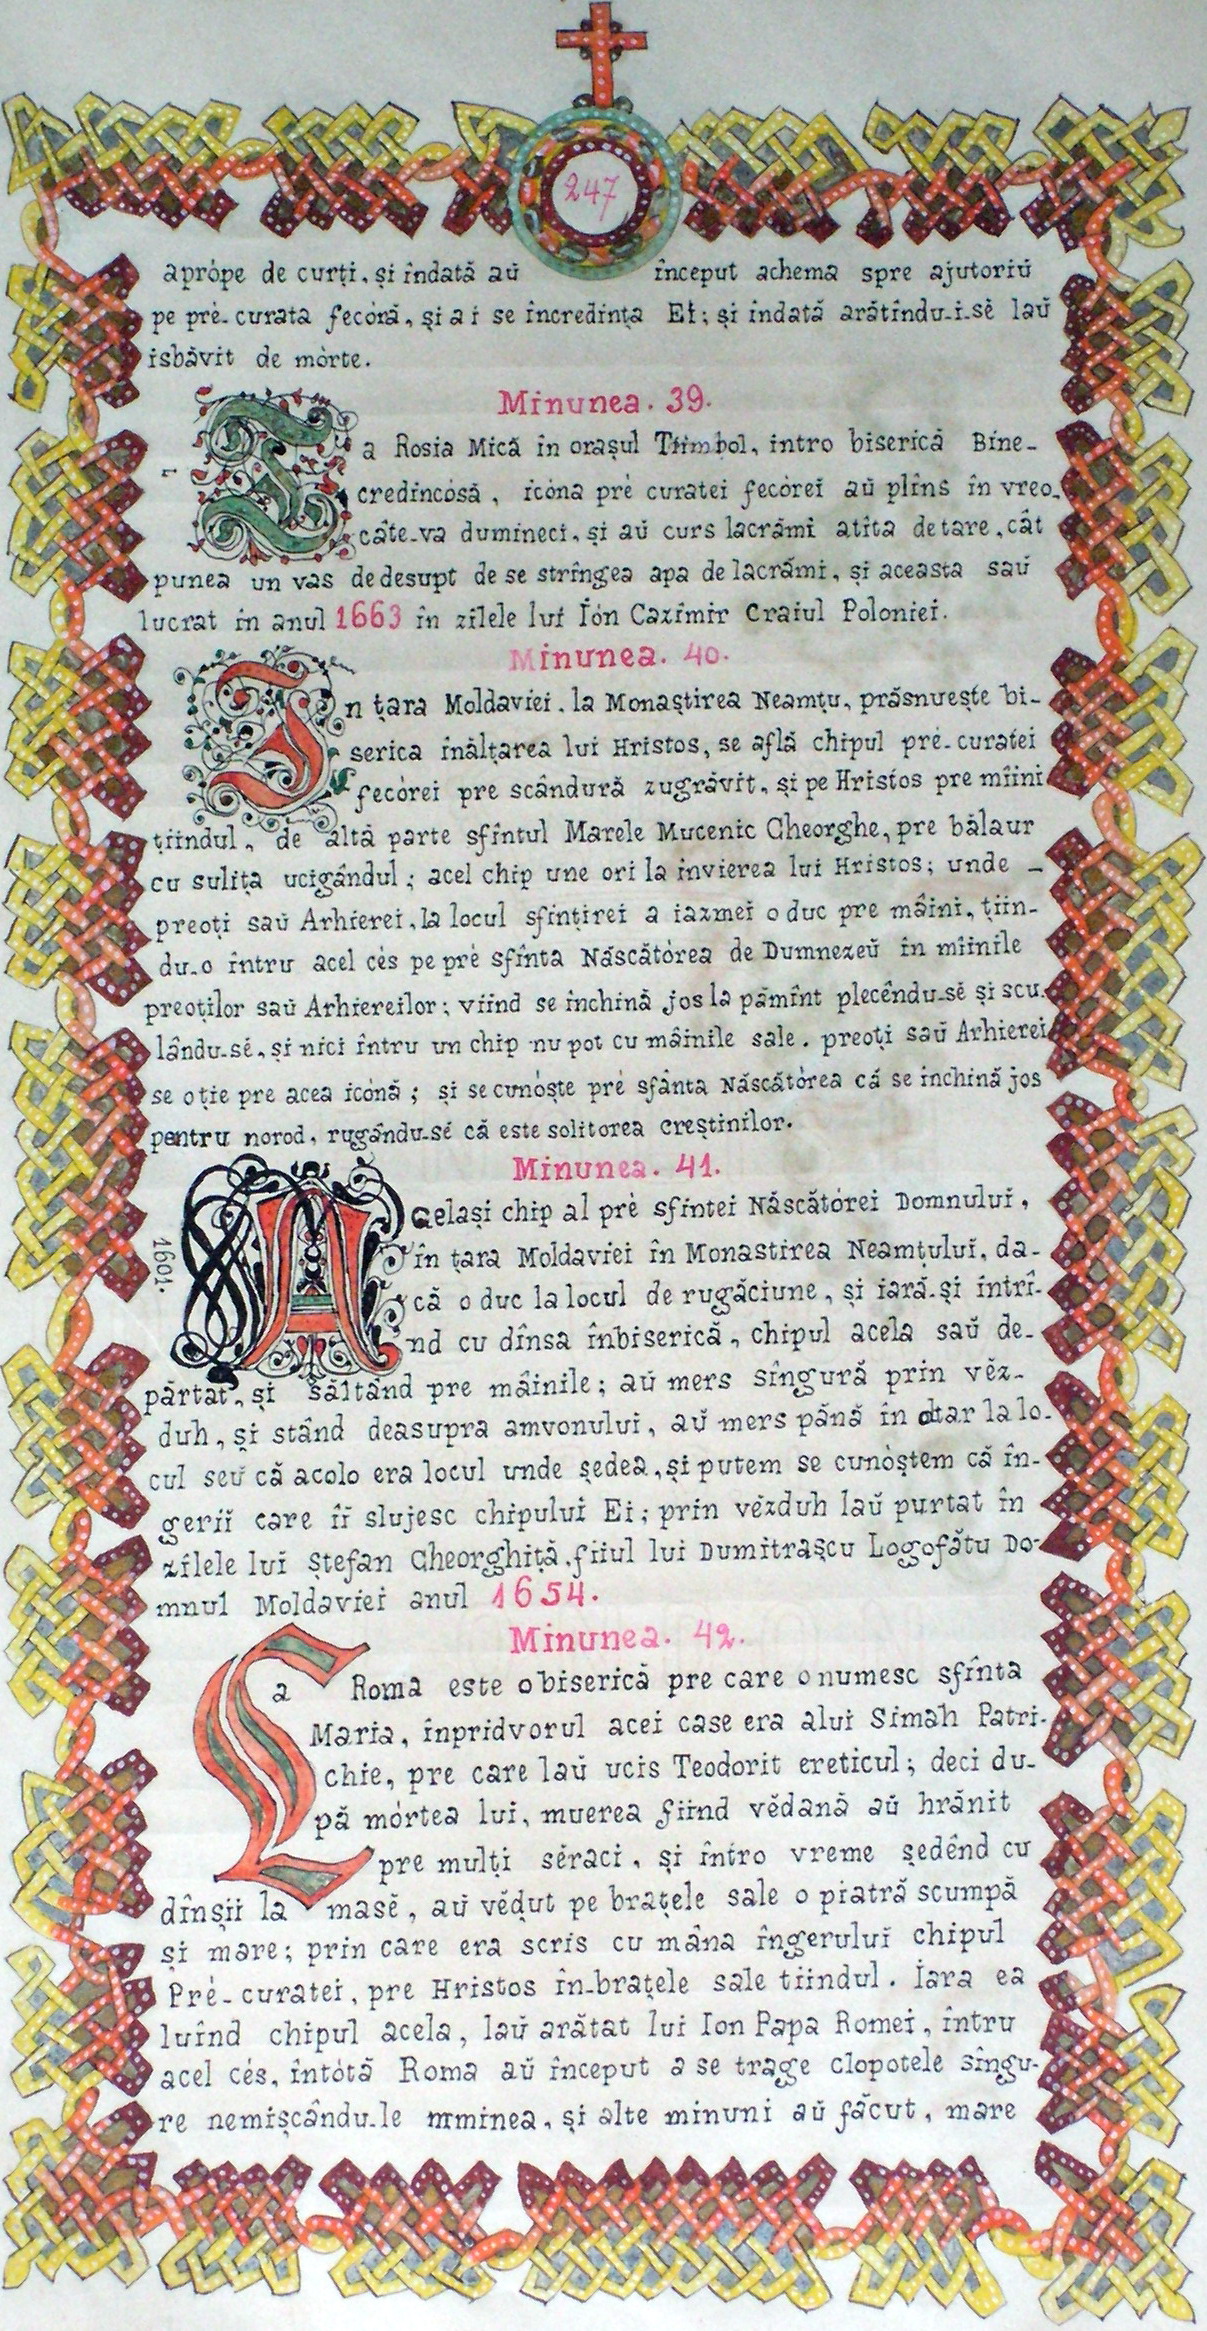 247
aprópe de curți, și îndată aŭ început achema spre ajutoriŭ
pe pré-curata fecóră, și a i se încredința Ei; și îndată arătîndu-i-sĕ laŭ
isbăvit de mórte.
Minunea. 39.
La Rosia Mică în orașul Tiimbol, intro biserică Bine-
credincósă, icóna pré curatei fecórei aŭ plîns în vreo-
câte-va dumineci, și aŭ curs lacrămi atîta detare, cât
punea un vas dedesupt de se strîngea apa de lacrămi, și aceasta saŭ
lucrat in anul 1663 în zilele lui Ión Cazimir Craiul Poloniei.
Minunea. 40.
In țara Moldaviei, la Monaștirea Neamțu, prăsnuește bi-
serica înălțarea lui Hristos, se află chipul pré-curatei
fecórei pre scândură zugrăvit, și pe Hristos pre mîini
țiindul, de altă parte sfîntul Marele Mucenic Gheorghe, pre bălaur
cu sulița ucigândul; acel chip une ori la invierea lui Hristos; unde -
preoți saŭ Arhierei, la locul sfințirei a iazmei o duc pre mâini, țiin-
du-o întru acel cés pe pré sfînta Născătórea de Dumnezeŭ în mîinile
preoților saŭ Arhiereilor; viind se închină jos la pămînt plecêndu-sĕ și scu-
lându-sĕ, și nici întru un chip nu pot cu mâinile sale. preoți saŭ Arhierei
se o ție pre acea icónă; și se cunóște pré sfânta Născătórea că se inchină jos
pentru norod, rugându-sĕ că este solitorea creștinilor.
Minunea. 41.
1601.
Același chip al pré sfintei Născătórei Domnului,
în țara Moldaviei în Monastirea Neamțului, da-
că o duc la locul de rugăciune, și iară-și intrî-
nd cu dînsa înbiserică, chipul acela saŭ de-
părtat, și săltând pre mâinile; aŭ mers sîngură prin vĕz-
duh, și stând deasupra amvonului, aŭ mers până în oltar la lo-
cul seŭ că acolo era locul unde ședea, și putem se cunóștem că în-
gerii care îi slujesc chipului Ei; prin vĕzduh laŭ purtat în
zilele lui Ștefan Gheorghiță, fiiul lui Dumitrașcu Logofătu Do-
mnul Moldaviei anul 1654.
Minunea. 42.
La Roma este o biserică pre care o numesc sfînta
Maria, înpridvorul acei case era alui Simah Patri-
chie, pre care laŭ ucis Teodorit ereticul; deci du-
pă mórtea lui, muerea fiind vĕdană aŭ hrănit
pre mulți sĕraci, și întro vreme ședênd cu
dînșii la masĕ, aŭ vĕdut pe brațele sale o piatră scumpă
și mare; prin care era scris cu mâna îngerului chipul
Pré-curatei, pre Hristos în-brațele sale tiindul. Iara ea
luînd chipul acela, laŭ arătat lui Ion Papa Romei, întru
acel cés, întótă Roma aŭ început a se trage clopotele sîngu-
re nemișcându-le nıminea, și alte minuni aŭ făcut, mare